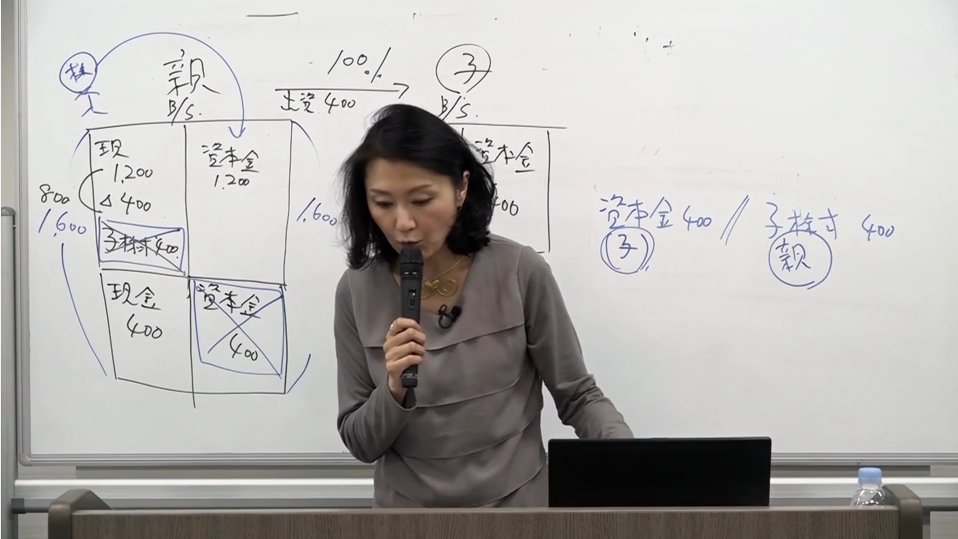 株
親
B/S.
100%
出資 400
子
B/S.
現
1,200
△400
子株式 400
資本金
1,200
800
1,600
1,600
現金
400
資本金
400
資本金
400
資本金 400 // 子株式 400
子
親